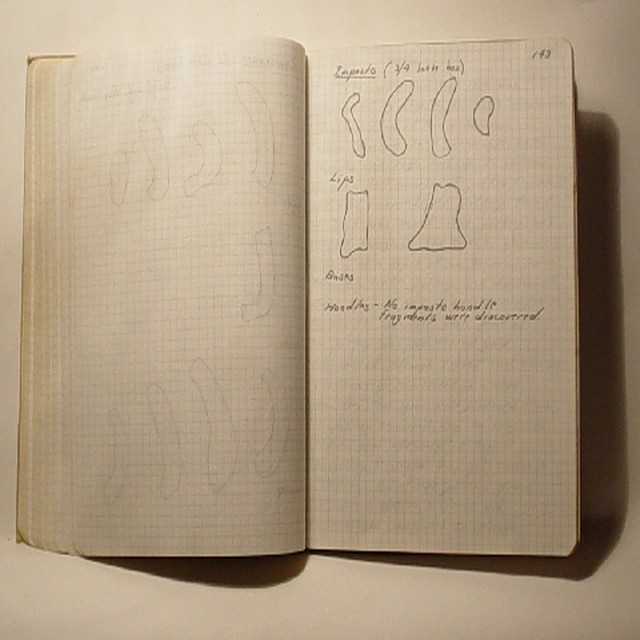 193
Impasto (3/4 
Lips
Bases
Handles - No impasto handle
fragments were discovered.